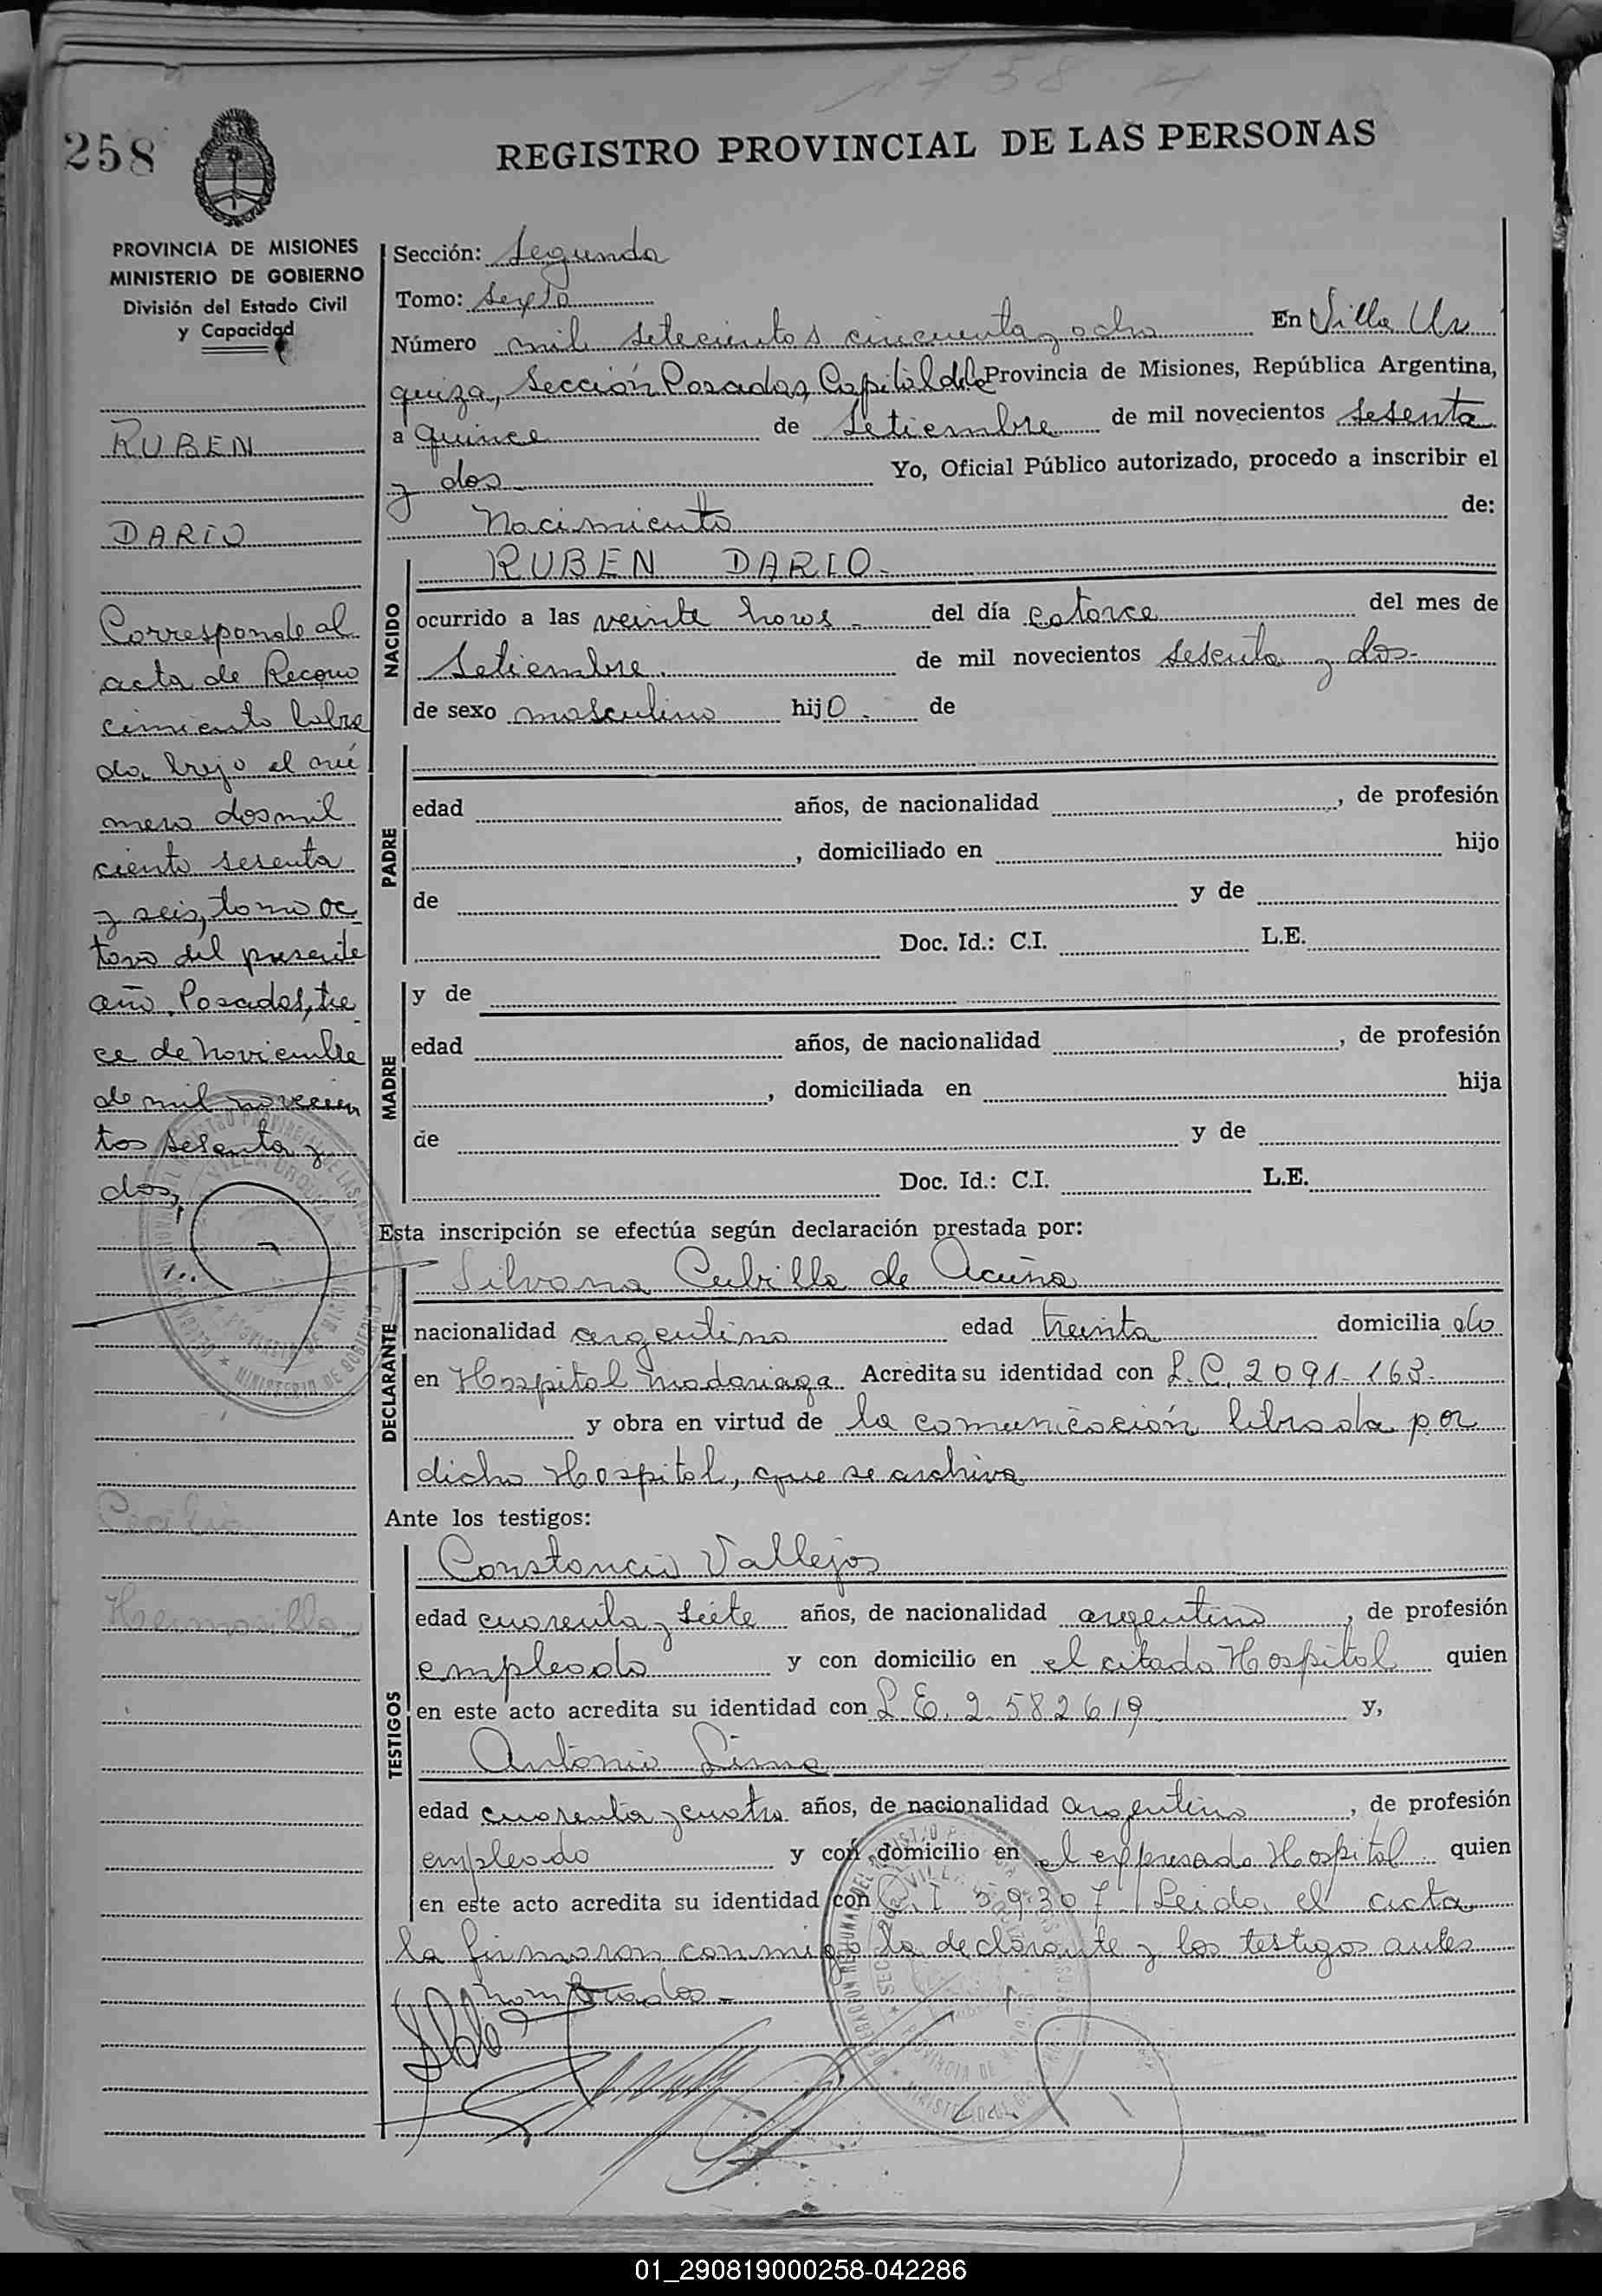 1758
258
REGISTRO PROVINCIAL DE LAS PERSONAS
PROVINCIA DE MISIONES
MINISTERIO DE GOBIERNO
División del Estado Civil
y Capacidad
RUBEN
DARIO
Corresponde al
acta de Recono
cimiento labra
da bajo el nú
mero dosmil
ciento sesenta
y seis, tomo oc
tavo del presente
año. Posadas, tre
ce de Noviembre
de mil novecien
tos sesenta y
dos,
Cecilio
Hermosilla
Sección: Segunda
Tomo: Sexto
Número mil setecientos cincuenta y ocho En Villa Ur
quiza, Sección Posadas, Capital de la Provincia de Misiones, República Argentina,
a quince de Setiembre de mil novecientos sesenta
y dos Yo, Oficial Público autorizado, procedo a inscribir el
Nacimiento de:
NACIDO
RUBEN DARIO.
ocurrido a las veinte horas del día catorce del mes de
Setiembre. de mil novecientos sesenta y dos
de sexo masculino hijo de
PADRE
edad años, de nacionalidad , de profesión
, domiciliado en hijo
de y de
Doc. Id.: C.I. L.E.
MADRE
y de
edad años, de nacionalidad , de profesión
, domiciliada en hija
de y de
Doc. Id.: C.I. L.E.
Esta inscripción se efectúa según declaración prestada por:
DECLARANTE
Silvana Cubilla de Acuña
nacionalidad argentina edad treinta domicilia da
en Hospital Madariaga Acredita su identidad con L.C. 2091-163.
y obra en virtud de la comunicación librada por
dicho Hospital, que se archiva
Ante los testigos:
TESTIGOS
Constancio Vallejos
edad cuarenta y siete años, de nacionalidad argentino , de profesión
empleado y con domicilio en el citado Hospital quien
en este acto acredita su identidad con L.E. 2.582619 y,
Antonio Lima
edad cuarenta y cuatro años, de nacionalidad argentino , de profesión
empleado y con domicilio en el expresado Hospital quien
en este acto acredita su identidad con C.I 59307 Leida el acta
la firmaron conmigo la declarante y los testigos antes
nombrados.-
01_290819000258-042286